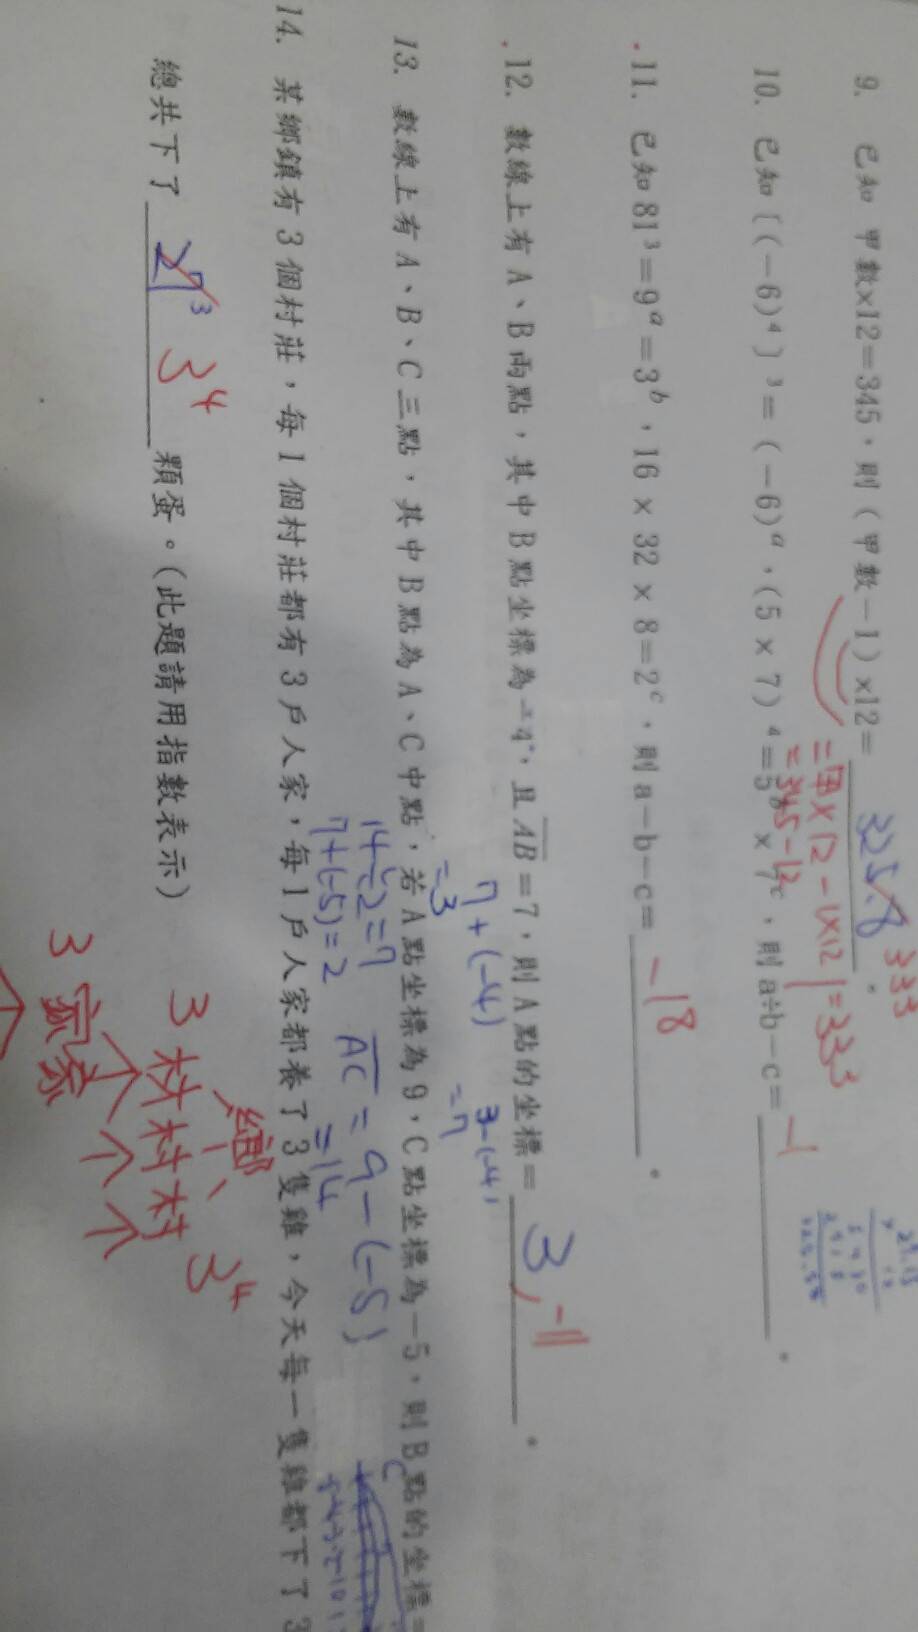 9. 已知 甲數×12=345,則(甲數-1)×12= 325.8 333。
=甲×12-1×12=333
=345-12
10. 已知〔(-6)⁴〕³=(-6)ᵃ,(5×7)⁴=5ᵇ×7ᶜ,則a÷b-c= -1。
11. 已知81³=9ᵃ=3ᵇ,16×32×8=2ᶜ,則a-b-c= -18。
12. 數線上有A、B兩點,其中B點坐標為-4,且AB=7,則A點的坐標= 3,-11。
7+(-4)
=3
3-(-4)
=7
13. 數線上有A、B、C三點,其中B點為A、C中點,若A點坐標為9,C點坐標為-5,則B點的坐標=
14÷2=7
7+(-5)=2
AC=9-(-5)
=14
14. 某鄉鎮有3個村莊,每1個村莊都有3戶人家,每1戶人家都養了3隻雞,今天每一隻雞都下了3
總共下了 27³ 3⁴ 顆蛋。(此題請用指數表示)
鄉
3 村 村 村
3 家
3⁴